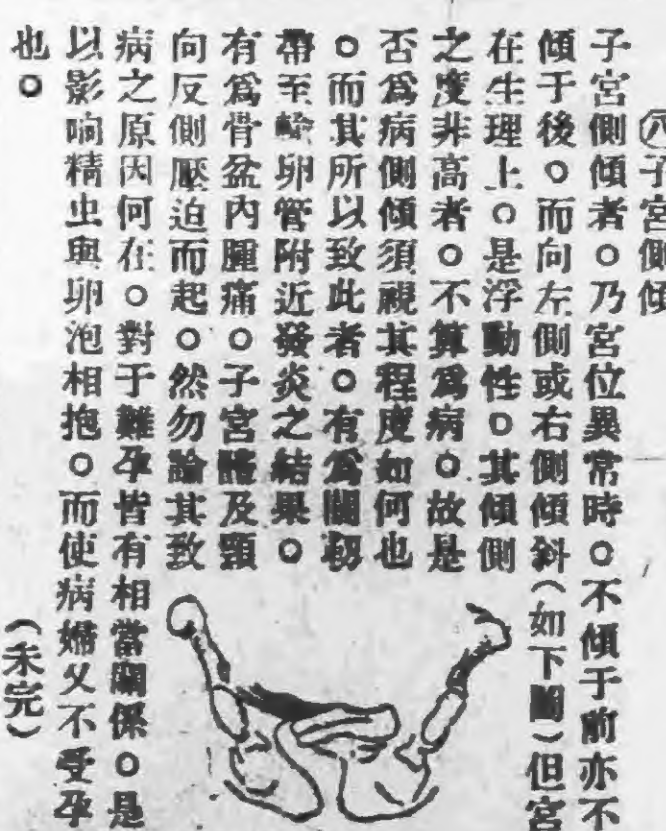 ㊇子宮側傾
子宮側傾者。乃宮位異常時。不傾于前亦不
傾于後。而向左側或右側傾斜(如下圖)但宮
在生理上。是浮動性。其傾側
之度非高者。不算爲病。故是
否爲病側傾須視其程度如何也
。而其所以致此者。有爲闊韌
帶至輸卵管附近發炎之結果。
有爲骨盆內腫痛。子宮體及頸
向反側壓迫而起。然勿論其致
病之原因何在。對于難孕皆有相當關係。是
以影响精虫與卵泡相抱。而使病婦久不受孕
也。
(未完)